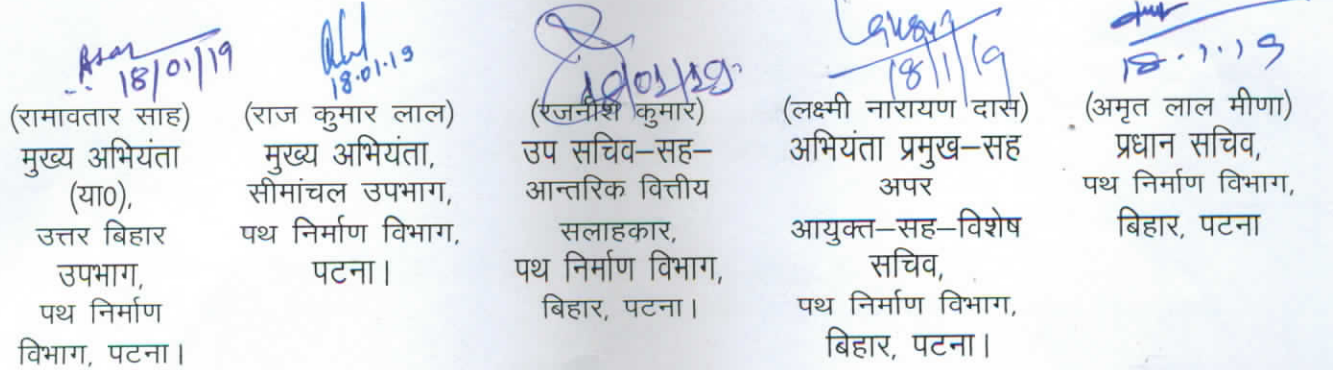 18/01/19
(रामावतार साह)
मुख्य अभियंता
(या0),
उत्तर बिहार
उपभाग,
पथ निर्माण
विभाग, पटना।
18.01.19
(राज कुमार लाल)
मुख्य अभियंता,
सीमांचल उपभाग,
पथ निर्माण विभाग,
पटना।
(रजनीश कुमार)
उप सचिव–सह–
आन्तरिक वित्तीय
सलाहकार,
पथ निर्माण विभाग,
बिहार, पटना।
18/1/19
(लक्ष्मी नारायण दास)
अभियंता प्रमुख–सह
अपर
आयुक्त–सह–विशेष
सचिव,
पथ निर्माण विभाग,
बिहार, पटना।
18.1.19
(अमृत लाल मीणा)
प्रधान सचिव,
पथ निर्माण विभाग,
बिहार, पटना